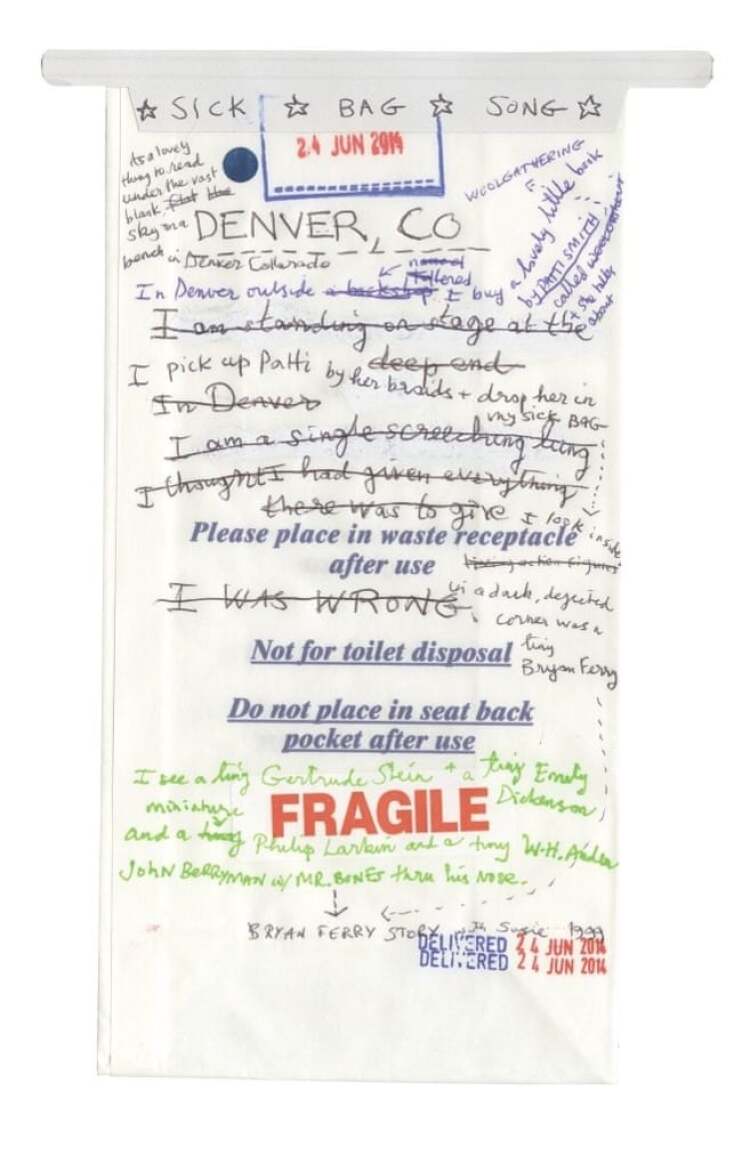 ☆ SICK ☆ BAG ☆ SONG ☆
24 JUN 2014
As a lovely
thing to read
under the vast
blank, flat blue
sky on a
bench in Denver Colorado
WOOLGATHERING
a lovely little book
by PATTI SMITH
called woolgathering
DENVER, CO
In Denver outside a I buy
I am standing on stage at the
deep end
I pick up Patti by her braids + drop her in
my sick BAG
In Denver
I am a single screeching lung
I thought I had given everything
there was to give
I look inside
Please place in waste receptacle
after use
I WAS WRONG
in a dark, dejected
corner was a
tiny
Bryan Ferry
Not for toilet disposal
Do not place in seat back
pocket after use
I see a tiny Gertrude Stein + a tiny Emily
Dickenson,
miniature
FRAGILE
and a tiny Philip Larkin and a tiny W.H. Auden
John BERRYMAN w/ MR. BONES thru his nose.
BRYAN FERRY STORY Susie 1999
DELIVERED 24 JUN 2014
DELIVERED 24 JUN 2014